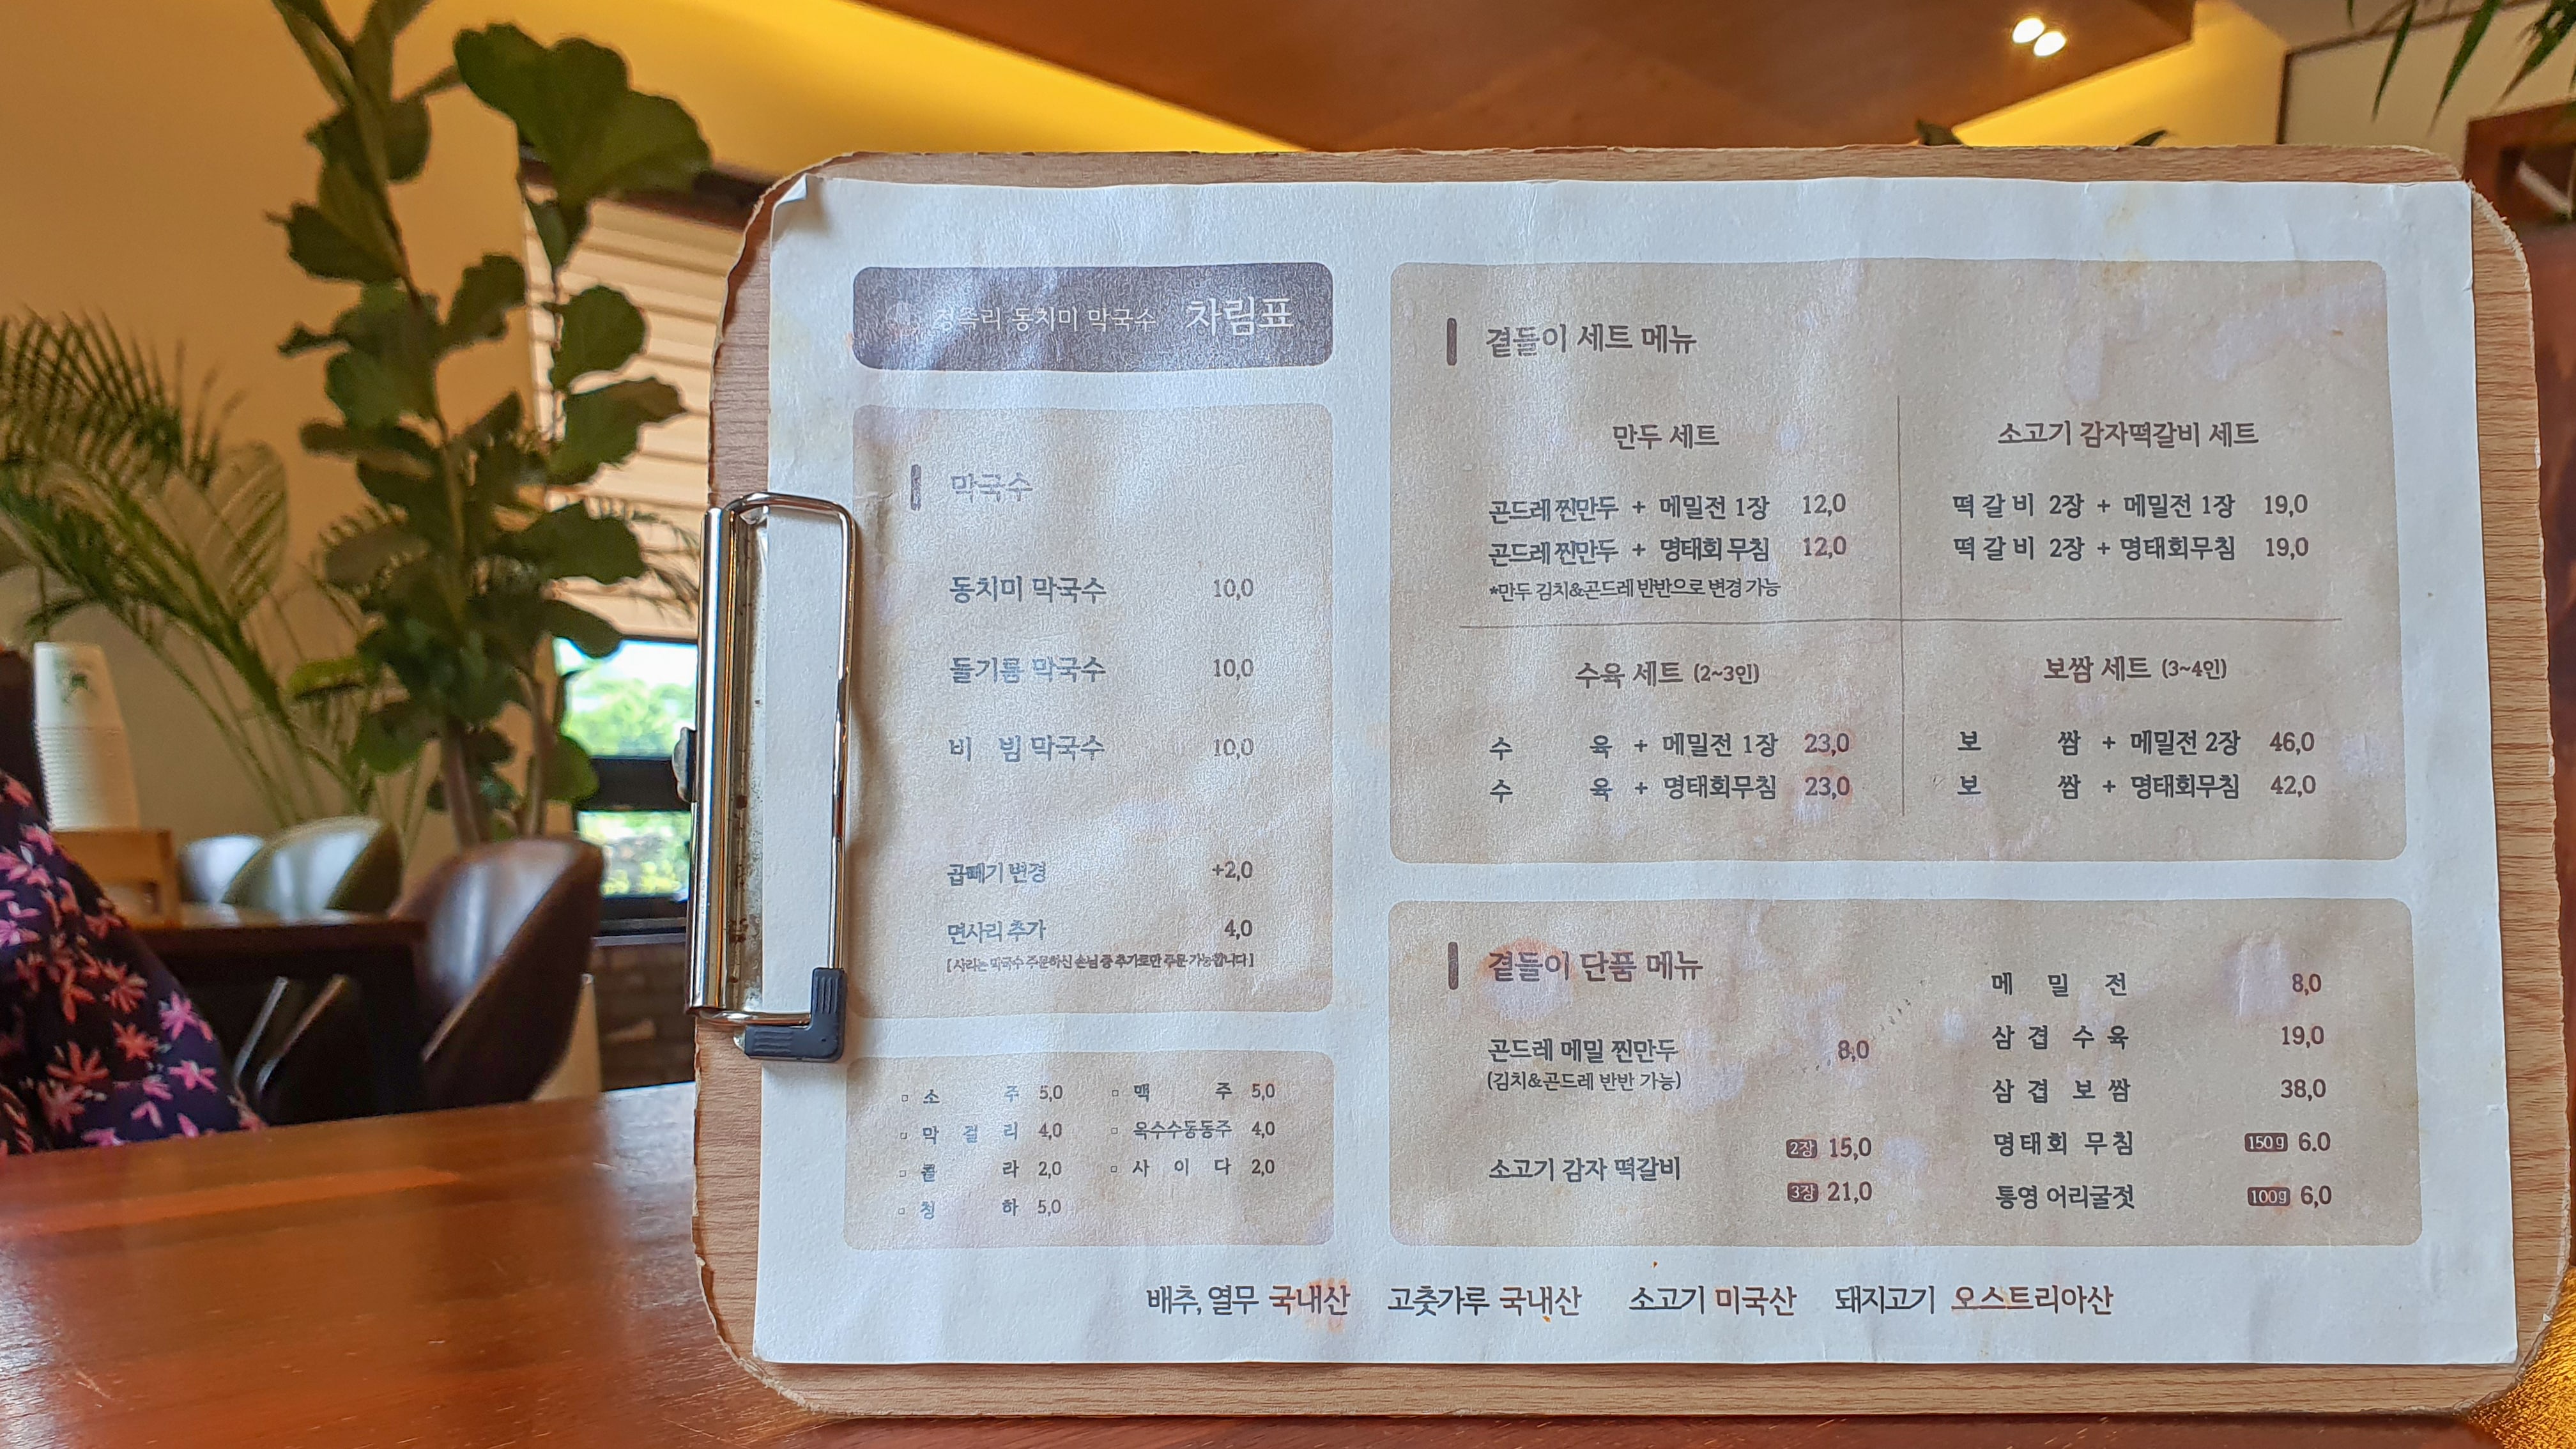 정족리 동치미 막국수 차림표
막국수
동치미 막국수 10,0
들기름 막국수 10,0
비 빔 막국수 10,0
곱빼기 변경 +2,0
면사리 추가 4,0
[ 사리는 막국수 주문하신 손님 중 추가로만 주문 가능합니다 ]
소 주 5,0
맥 주 5,0
막 걸 리 4,0
옥수수동동주 4,0
콜 라 2,0
사 이 다 2,0
청 하 5,0
곁들이 세트 메뉴
만두 세트
곤드레 찐만두 + 메밀전 1장 12,0
곤드레 찐만두 + 명태회무침 12,0
*만두 김치&곤드레 반반으로 변경 가능
소고기 감자떡갈비 세트
떡 갈 비 2장 + 메밀전 1장 19,0
떡 갈 비 2장 + 명태회무침 19,0
수육 세트 (2~3인)
수 육 + 메밀전 1장 23,0
수 육 + 명태회무침 23,0
보쌈 세트 (3~4인)
보 쌈 + 메밀전 2장 46,0
보 쌈 + 명태회무침 42,0
곁들이 단품 메뉴
곤드레 메밀 찐만두 8,0
(김치&곤드레 반반 가능)
소고기 감자 떡갈비
2장 15,0
3장 21,0
메 밀 전 8,0
삼 겹 수 육 19,0
삼 겹 보 쌈 38,0
명태회 무침 150g 6.0
통영 어리굴젓 100g 6,0
배추, 열무 국내산 고춧가루 국내산 소고기 미국산 돼지고기 오스트리아산